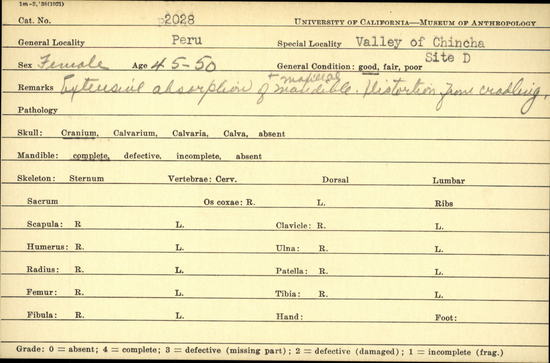 1m-2,'38(1021)
Cat. No. 2028 UNIVERSITY OF CALIFORNIA—MUSEUM OF ANTHROPOLOGY
General Locality Peru Special Locality Valley of Chincha
Site D
Sex Female Age 45-50 General Condition: good, fair, poor
+ maxillae
Remarks Extensive absorption of mandible. Distortion from cradling.
Pathology
Skull: Cranium, Calvarium, Calvaria, Calva, absent
Mandible: complete, defective, incomplete, absent
Skeleton: Sternum Vertebrae: Cerv. Dorsal Lumbar
Sacrum Os coxae: R. L. Ribs
Scapula: R L. Clavicle: R. L.
Humerus: R. L. Ulna: R. L.
Radius: R. L. Patella: R. L.
Femur: R. L. Tibia: R. L.
Fibula: R. L. Hand: Foot:
Grade: 0 = absent; 4 = complete; 3 = defective (missing part); 2 = defective (damaged); 1 = incomplete (frag.)